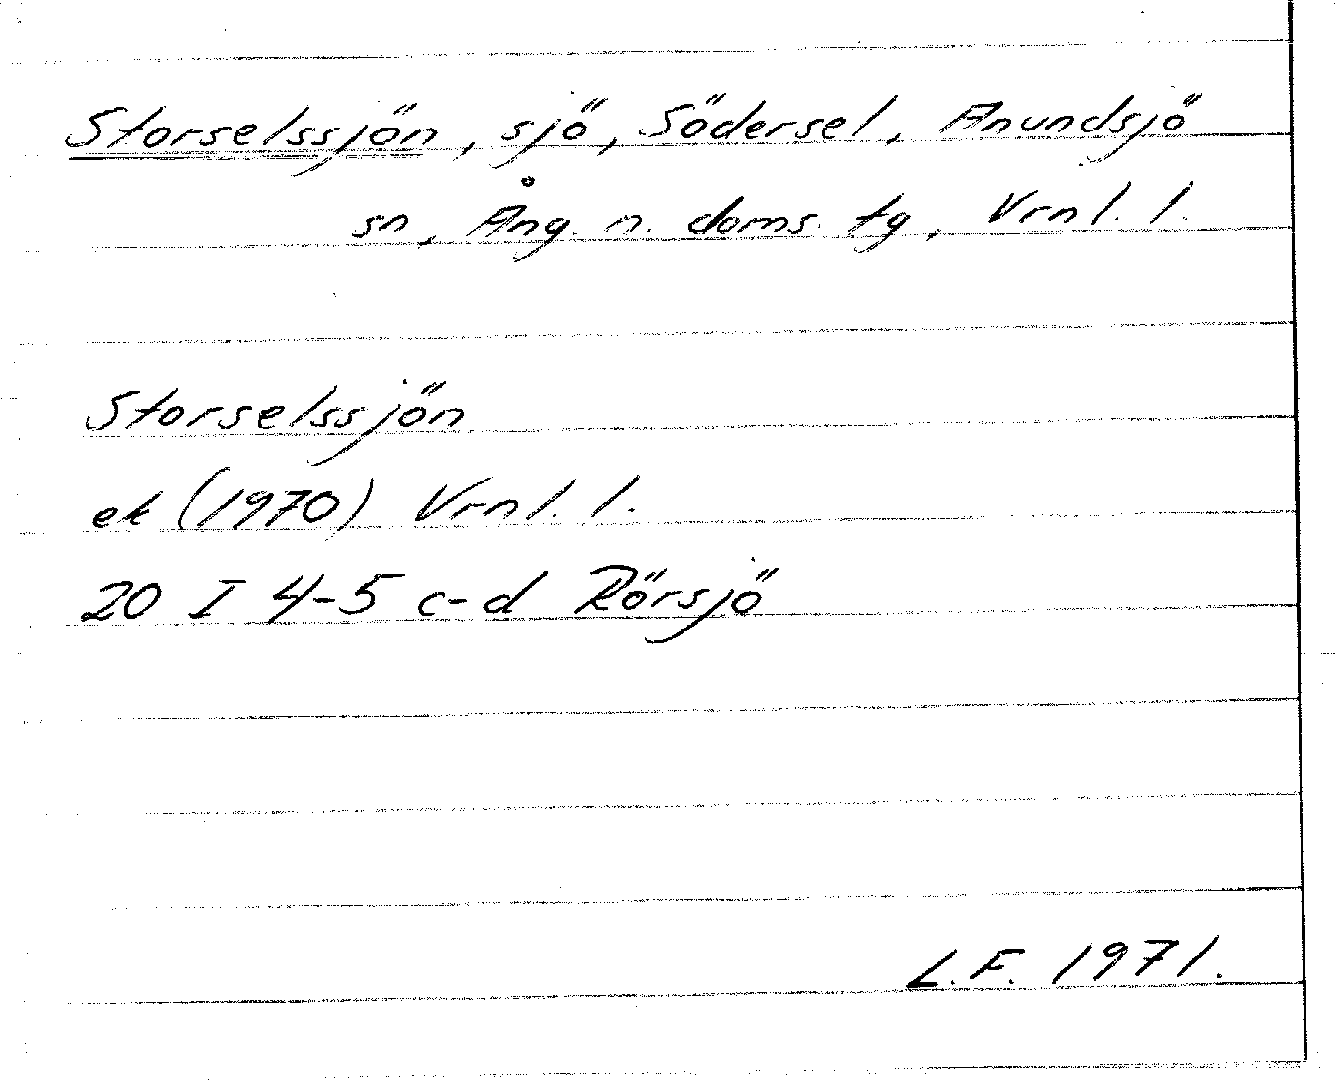 Storselssjön, sjö, Södersel, Anundsjö
sn, Ång. n. doms. tg, Vrnl. l.
Storselssjön
ek (1970) Vrnl. l.
20 I 4-5 c-d Rörsjö
L.F. 1971.